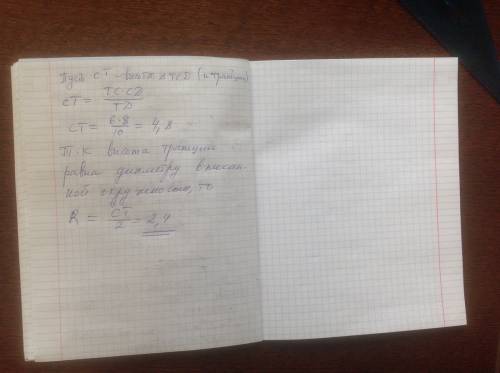 Пусть CT - высота ΔTCD (и трапеции)
CT = TC·CD / TD
CT = 6·8 / 10 = 4,8
Т.к высота трапеции
равна диаметру вписан-
ной окружности, то
R = CT / 2 = 2,4